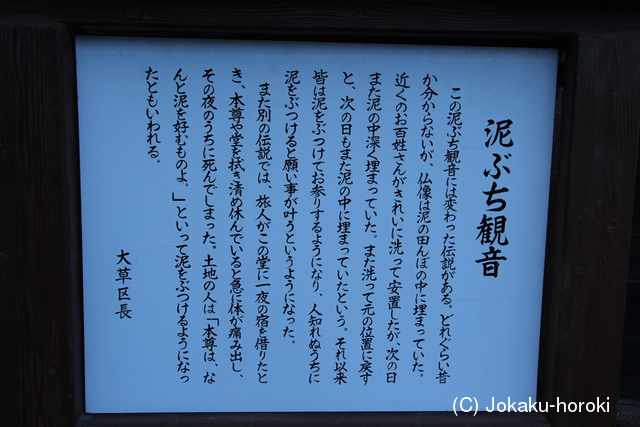 泥ぶち観音
この泥ぶち観音には変わった伝説がある。どれぐらい昔
か分からないが、仏像は泥の田んぼの中に埋まっていた。
近くのお百姓さんがきれいに洗って安置したが、次の日
また泥の中深く埋まっていた。また洗って元の位置に戻す
と、次の日もまた泥の中に埋まっていたという。それ以来
皆は泥をぶつけてお参りするようになり、人知れぬうちに
泥をぶつけると願い事が叶うというようになった。
また別の伝説では、旅人がこの堂に一夜の宿を借りたと
き、本尊や堂を拭き清め休んでいると急に体が痛み出し、
その夜のうちに死んでしまった。土地の人は「本尊は、な
んと泥を好むものよ。」といって泥をぶつけるようになっ
たともいわれる。
大草区長
(C) Jokaku-horoki